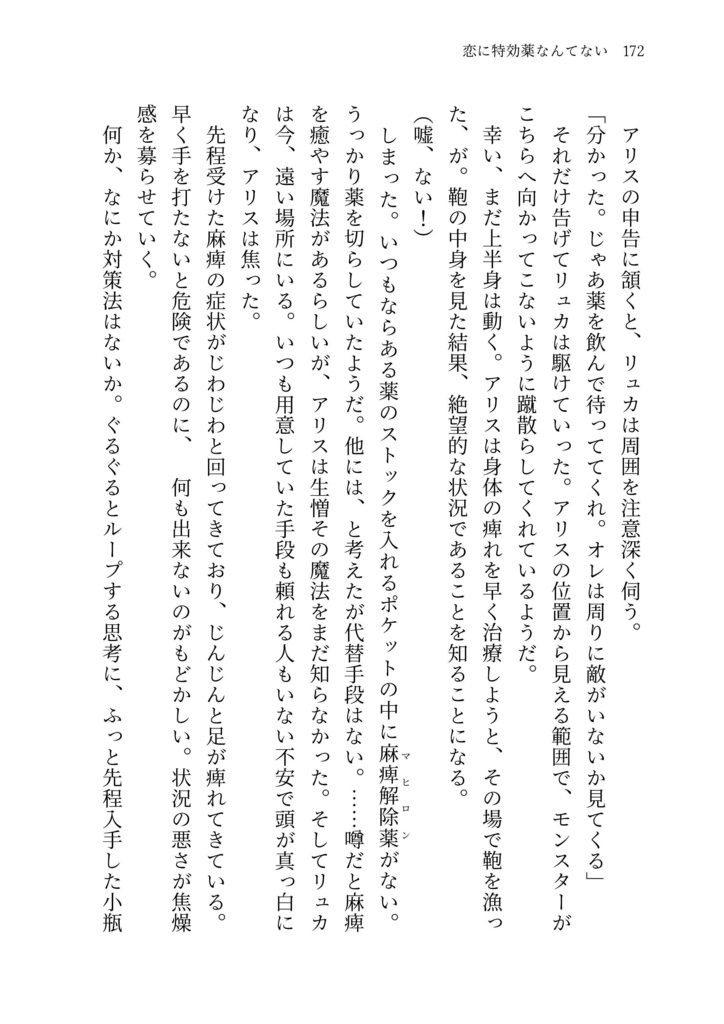 恋に特効薬なんてない 172
アリスの申告に頷くと、リュカは周囲を注意深く伺う。
「分かった。じゃあ薬を飲んで待っててくれ。オレは周りに敵がいないか見てくる」
それだけ告げてリュカは駆けていった。アリスの位置から見える範囲で、モンスターが
こちらへ向かってこないように蹴散らしてくれているようだ。
幸い、まだ上半身は動く。アリスは身体の痺れを早く治療しようと、その場で鞄を漁っ
た、が。鞄の中身を見た結果、絶望的な状況であることを知ることになる。
(嘘、ない!)
しまった。いつもならある薬のストックを入れるポケットの中に麻痺解除薬がない。
マヒロン
うっかり薬を切らしていたようだ。他には、と考えたが代替手段はない。……噂だと麻痺
を癒やす魔法があるらしいが、アリスは生憎その魔法をまだ知らなかった。そしてリュカ
は今、遠い場所にいる。いつも用意していた手段も頼れる人もいない不安で頭が真っ白に
なり、アリスは焦った。
先程受けた麻痺の症状がじわじわと回ってきており、じんじんと足が痺れてきている。
早く手を打たないと危険であるのに、 何も出来ないのがもどかしい。状況の悪さが焦燥
感を募らせていく。
何か、なにか対策法はないか。ぐるぐるとループする思考に、ふっと先程入手した小瓶